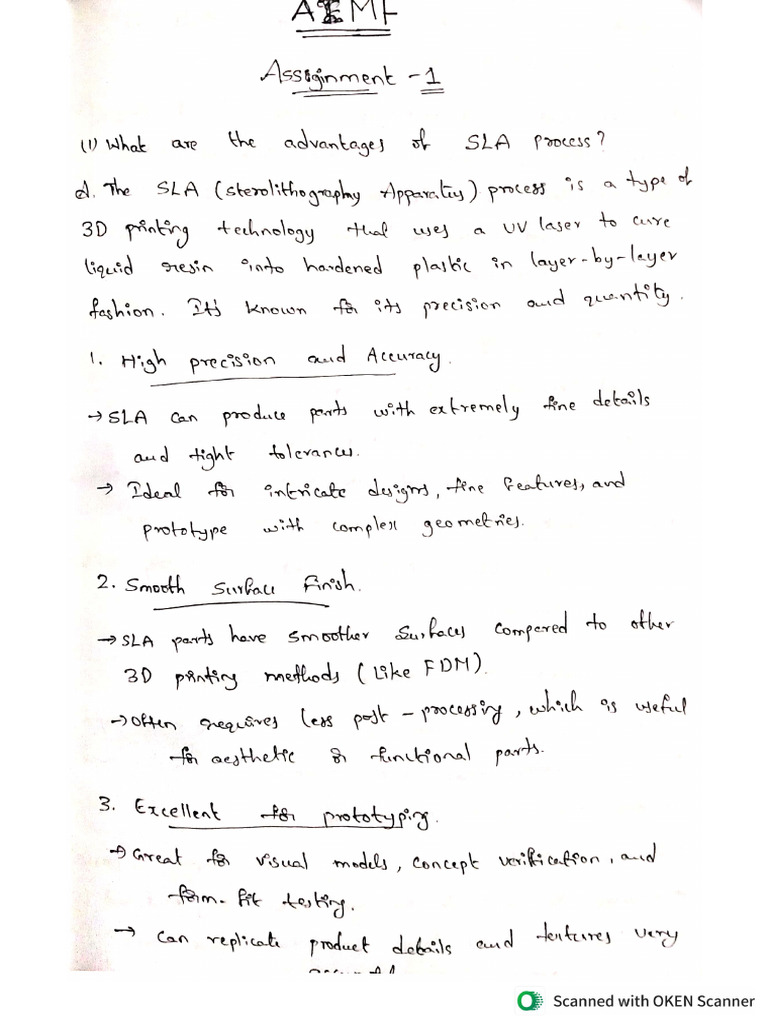 Assignment - 1
(1) What are the advantages of SLA process?
A. The SLA (sterolithography Apparatus) process is a type of
3D printing technology that uses a UV laser to cure
liquid resin into hardened plastic in layer-by-layer
fashion. It's known for its precision and quantity.
1. High precision and Accuracy.
→ SLA can produce parts with extremely fine details
and tight tolerances.
→ Ideal for intricate designs, fine features, and
prototype with complex geometries.
2. Smooth Surface Finish.
→ SLA parts have smoother surfaces compared to other
3D printing methods (Like FDM).
→ Often requires less post-processing, which is useful
for aesthetic or functional parts.
3. Excellent for prototyping.
→ Great for visual models, concept verification, and
form-fit testing.
→ can replicate product details and textures very
Scanned with OKEN Scanner